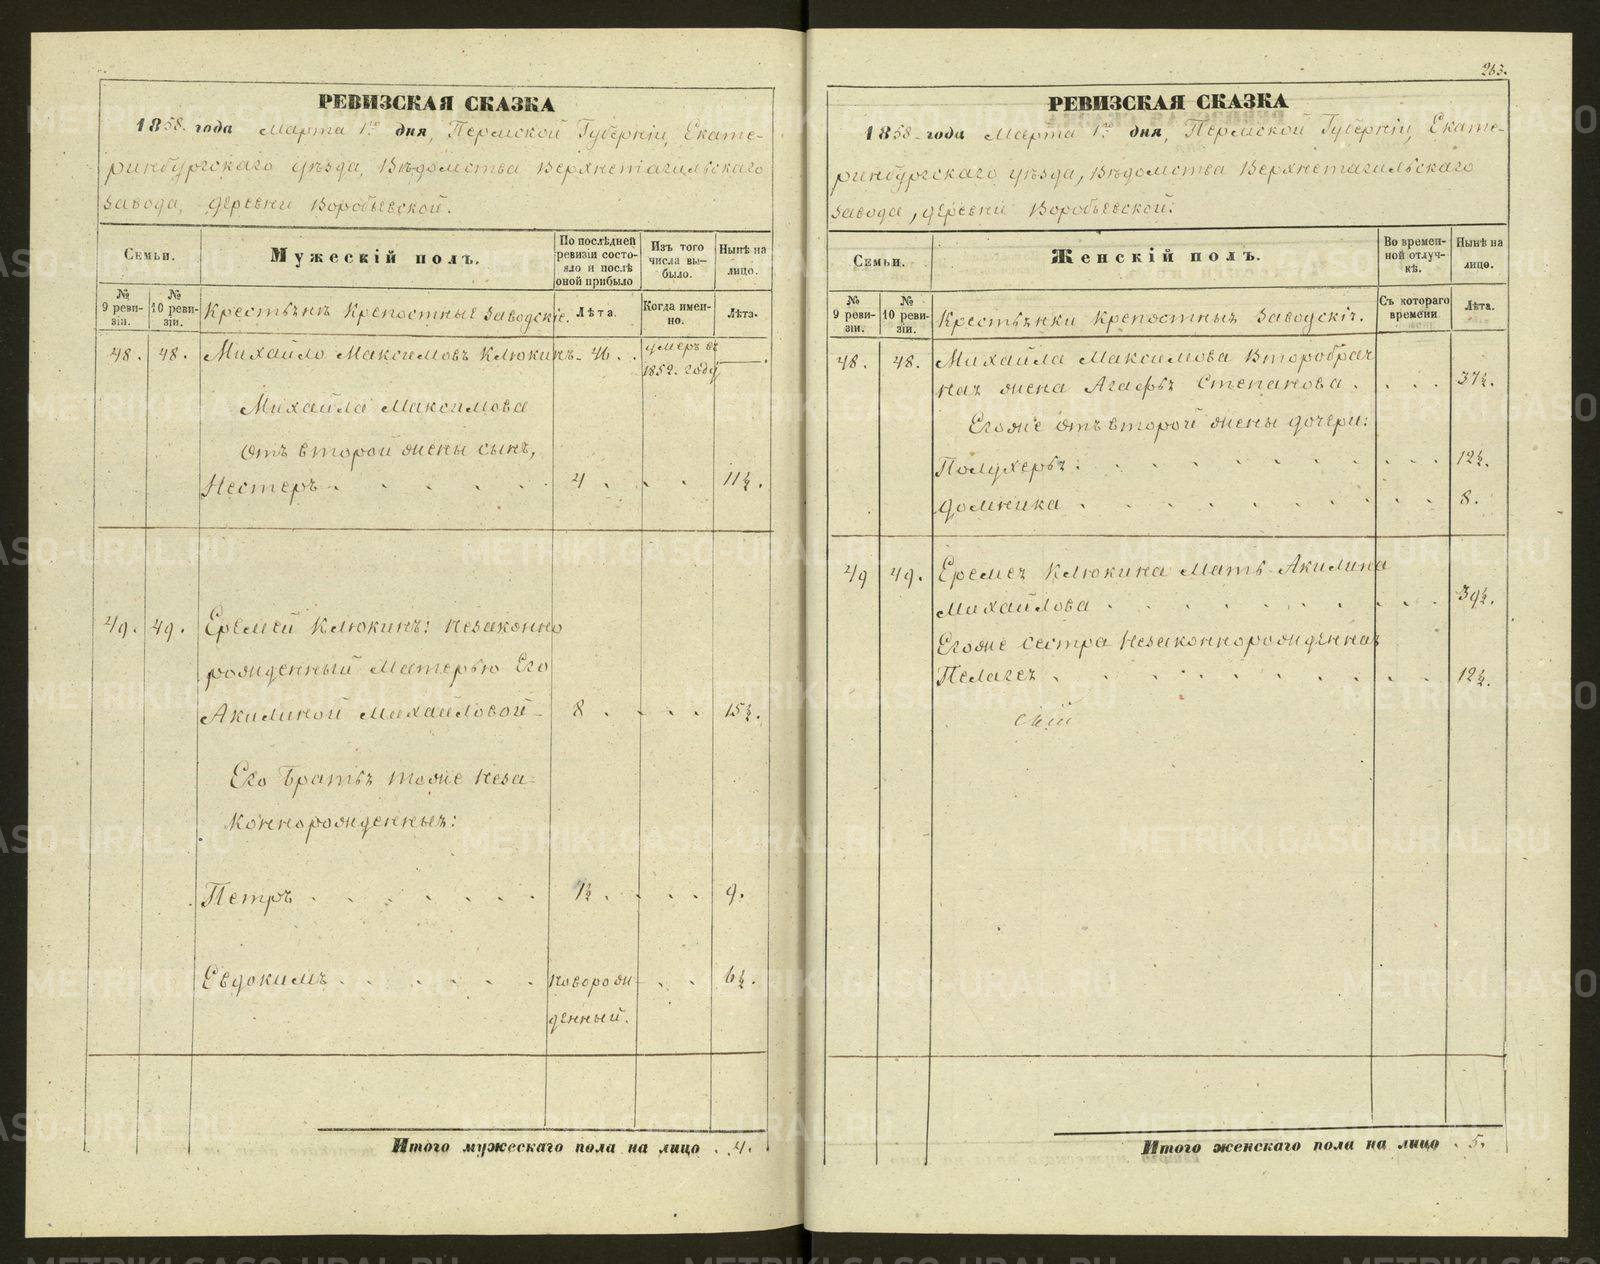 263.
РЕВИЗСКАЯ СКАЗКА
1858. года Марта 1го дня, Пермской Губерніи, Екате-
ринбургскаго уѣзда, Вѣдомства Верхнетагильскаго
завода, деревни Воробьевской.
Семьи.
Мужескій полъ.
По послѣдней ревизіи состо-яло и послѣ оной прибыло
Изъ того числа вы-было.
Нынѣ на лицо.
№ 9 реви-зіи.
№ 10 реви-зіи.
Крестьянъ Крепостные Заводскіе.
Лѣта.
Когда имен-но.
Лѣта.
48. 48. Михайло Максимовъ Клюкинъ- 46. . умеръ въ
1852. году
Михайла Максимова
отъ второй жены сынъ,
Нестеръ 4 11½.
49. 49. Еремей Клюкинъ: незаконно
рожденный Матерью Его
Акилиной Михайловой 8 15½.
Его Братья тоже неза-
коннорожденныя:
Петръ 1½ 9.
Евдокимъ новорож- 6½.
денный.
Итого мужескаго пола на лицо . 4.
РЕВИЗСКАЯ СКАЗКА
1858-года Марта 1го дня, Пермской Губерніи, Екате-
ринбургскаго уѣзда, Вѣдомства Верхнетагильскаго
завода, деревни Воробьевской:
Семьи.
Женскій полъ.
Во времен-ной отлуч-кѣ.
Нынѣ на лицо.
№ 9 реви-зіи.
№ 10 реви-зіи.
Крестьянки Крепостныя Заводскія.
Съ котораго времени
Лѣта.
48. 48. Михайла Максимова Второбрач
ная жена Агафья Степанова. 37½.
Егоже отъ второй жены дочери:
Полухерья 12½.
Домника 8.
49 49. Еремея Клюкина Мать Акилина
Михайлова 39½.
Егоже сестра Незаконнорожденная
Пелагея 12½.
Итого женскаго пола на лицо . 5.
METRIKI.GASO-URAL.RU